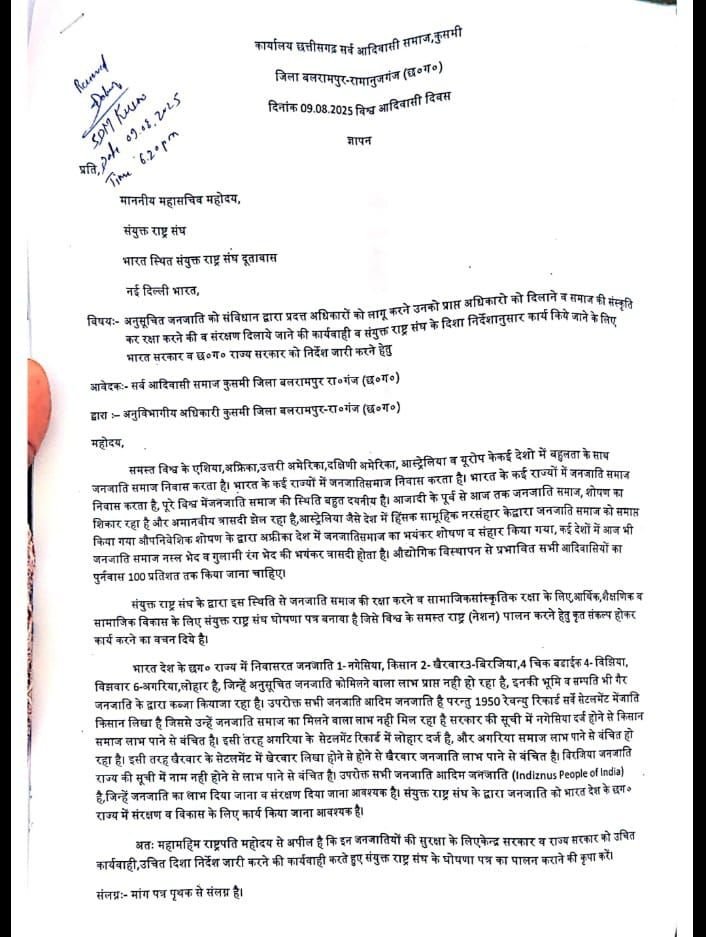 कार्यालय छत्तीसगढ़ सर्व आदिवासी समाज,कुसमी
जिला बलरामपुर-रामानुजगंज (छ०ग०)
दिनांक 09.08.2025 विश्व आदिवासी दिवस
ज्ञापन
Received
SDM
Date 09.08.2025
Time 6.20 pm
प्रति,
माननीय महासचिव महोदय,
संयुक्त राष्ट्र संघ
भारत स्थित संयुक्त राष्ट्र संघ दूतावास
नई दिल्ली भारत,
विषयः- अनुसूचित जनजाति को संविधान द्वारा प्रदत्त अधिकारों को लागू करने उनको प्राप्त अधिकारो को दिलाने व समाज की संस्कृति
कर रक्षा करने की व संरक्षण दिलाये जाने की कार्यवाही व संयुक्त राष्ट्र संघ के दिशा निर्देशानुसार कार्य किये जाने के लिए
भारत सरकार व छ०ग० राज्य सरकार को निर्देश जारी करने हेतु
आवेदकः- सर्व आदिवासी समाज कुसमी जिला बलरामपुर रा०गंज (छ०ग०)
द्वारा :– अनुविभागीय अधिकारी कुसमी जिला बलरामपुर-रा०गंज (छ०ग०)
महोदय,
समस्त विश्व के एशिया,अफ्रिका,उत्तरी अमेरिका,दक्षिणी अमेरिका, आस्ट्रेलिया व यूरोप केकई देशो में बहुलता के साथ
जनजाति समाज निवास करता है। भारत के कई राज्यों में जनजातिसमाज निवास करता है। भारत के कई राज्यों में जनजाति समाज
निवास करता है, पूरे विश्व मेंजनजाति समाज की स्थिति बहुत दयनीय है। आजादी के पूर्व से आज तक जनजाति समाज, शोषण का
शिकार रहा है और अमानवीय त्रासदी झेल रहा है,आस्ट्रेलिया जैसे देश में हिंसक सामूहिक नरसंहार केद्वारा जनजाति समाज को समाप्त
किया गया औपनिवेशिक शोषण के द्वारा अफ्रीका देश में जनजातिसमाज का भयंकर शोषण व संहार किया गया, कई देशों में आज भी
जनजाति समाज नस्ल भेद व गुलामी रंग भेद की भयंकर त्रासदी होता है। औद्योगिक विस्थापन से प्रभावित सभी आदिवासियों का
पुर्नवास 100 प्रतिशत तक किया जाना चाहिए।
संयुक्त राष्ट्र संघ के द्वारा इस स्थिति से जनजाति समाज की रक्षा करने व सामाजिकसांस्कृतिक रक्षा के लिए,आर्थिक,शैक्षणिक व
सामाजिक विकास के लिए संयुक्त राष्ट्र संघ घोषणा पत्र बनाया है जिसे विश्व के समस्त राष्ट्र (नेशन) पालन करने हेतु कृत संकल्प होकर
कार्य करने का वचन दिये है।
भारत देश के छग० राज्य में निवासरत जनजाति 1- नगेसिया, किसान 2- खैरवार3-बिरजिया,4 चिक बडाईक 4- विझिया,
विझवार 6-अगरिया,लोहार है, जिन्हें अनुसूचित जनजाति कोमिलने वाला लाभ प्राप्त नही हो रहा है, इनकी भूमि व सम्पति भी गैर
जनजाति के द्वारा कब्जा कियाजा रहा है। उपरोक्त सभी जनजाति आदिम जनजाति है परन्तु 1950 रेवन्यु रिकार्ड सर्वे सेटलमेंट मेंजाति
किसान लिखा है जिससे उन्हें जनजाति समाज का मिलने वाला लाभ नही मिल रहा है सरकार की सूची में नगेसिया दर्ज होने से किसान
समाज लाभ पाने से वंचित है। इसी तरह अगरिया के सेटलमेंट रिकार्ड में लोहार दर्ज है, और अगरिया समाज लाभ पाने से वंचित हो
रहा है। इसी तरह खैरवार के सेटलमेंट में खेरवार लिखा होने से होने से खैरवार जनजाति लाभ पाने से वंचित है। विरजिया जनजाति
राज्य की सूची में नाम नही होने से लाभ पाने से वंचित है। उपरोक्त सभी जनजाति आदिम जनजाति (Indiznus People of India)
है,जिन्हें जनजाति का लाभ दिया जाना व संरक्षण दिया जाना आवश्यक है। संयुक्त राष्ट्र संघ के द्वारा जनजाति को भारत देश के छग०
राज्य में संरक्षण व विकास के लिए कार्य किया जाना आवश्यक है।
अतः महामहिम राष्ट्रपति महोदय से अपील है कि इन जनजातियों की सुरक्षा के लिएकेन्द्र सरकार व राज्य सरकार को उचित
कार्यवाही,उचित दिशा निर्देश जारी करने की कार्यवाही करते हुए संयुक्त राष्ट्र संघ के घोषणा पत्र का पालन कराने की कृपा करें।
संलग्नः- मांग पत्र पृथक से संलग्न है।